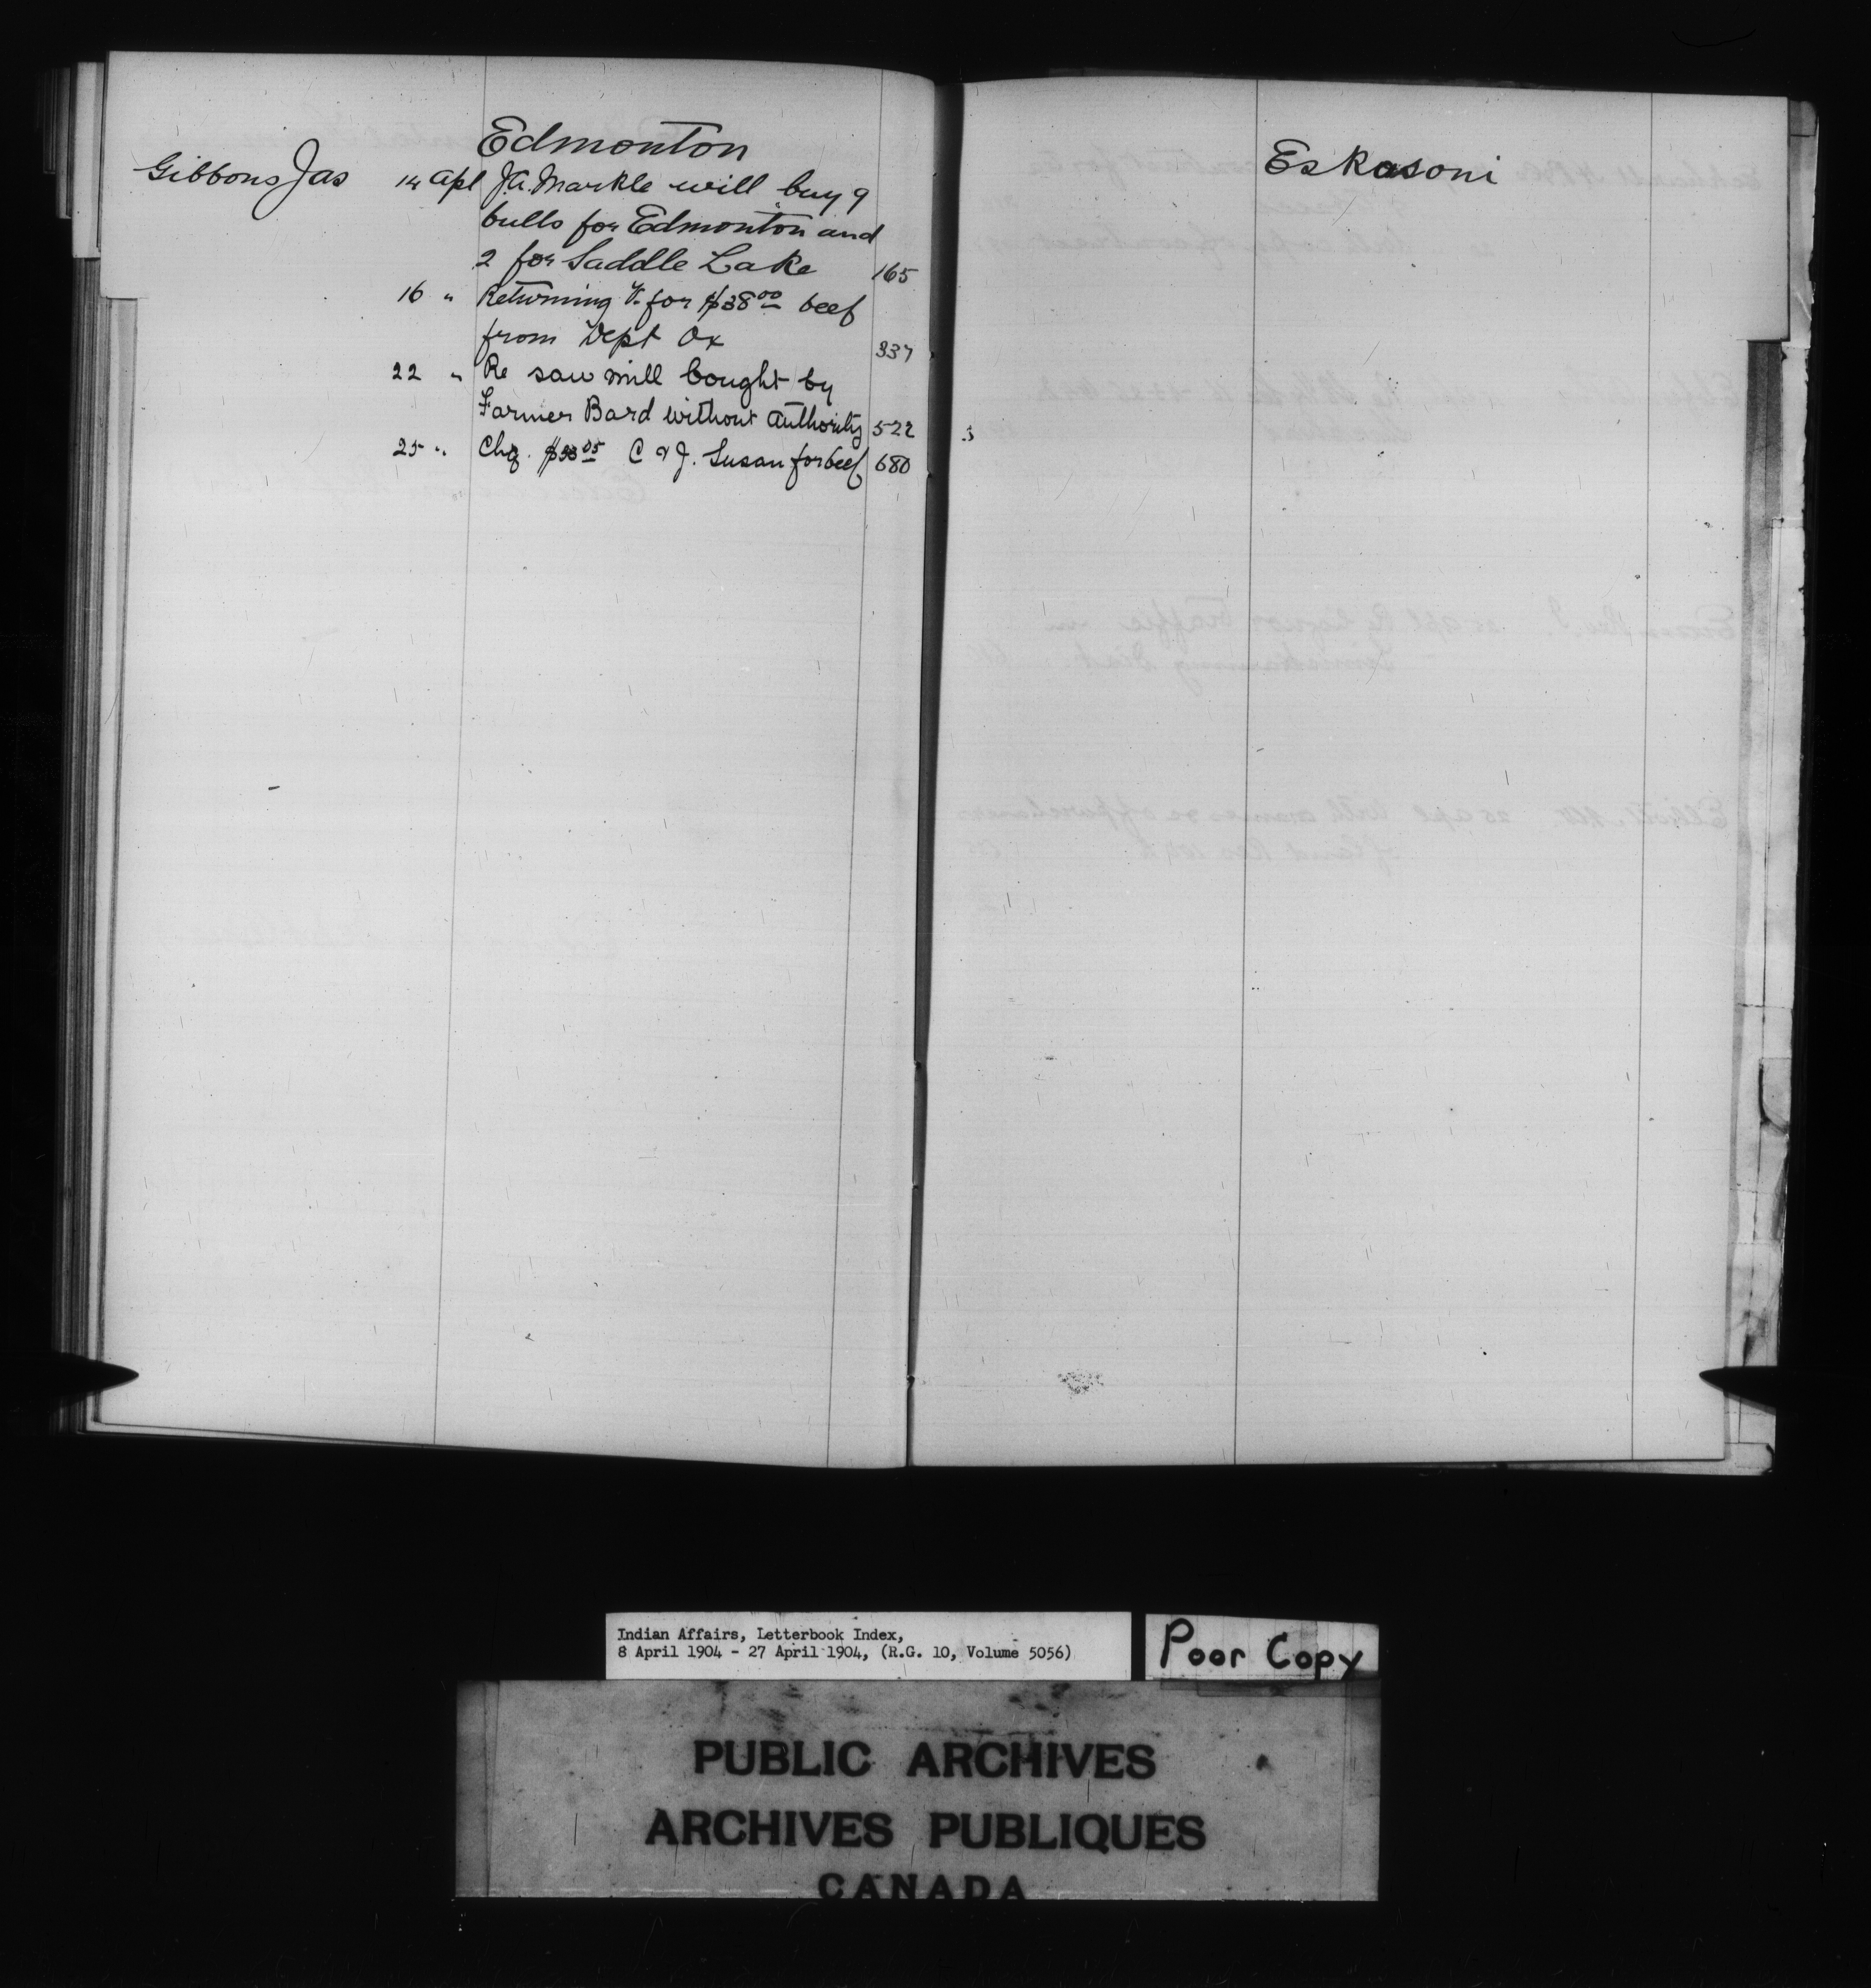 Edmonton
Gibbons Jas 14 Apl J.A. Markle will buy 9
bulls for Edmonton and
2 for Saddle Lake 165
16 " Returning V. for $38.00 beef
from Dept Ox 337
22 " Re saw mill bought by
Farmer Bard without authority 522
25 " Chq. C & J. Susan for beef 680
Eskasoni
Indian Affairs, Letterbook Index,
8 April 1904 - 27 April 1904, (R.G. 10, Volume 5056)
Poor Copy
PUBLIC ARCHIVES
ARCHIVES PUBLIQUES
CANADA